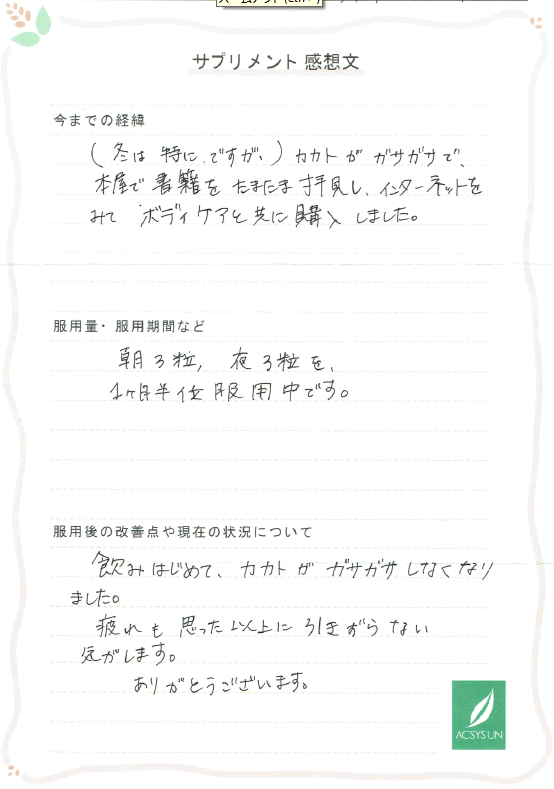 サプリメント 感想文
今までの経緯
(冬は 特に、ですが、) カカトが ガサガサで、
本屋で 書籍を たまたま 拝見し、インターネットを
みて ボディケアと共に 購入しました。
服用量・服用期間など
朝3粒, 夜3粒を、
1ヶ月半位服用中です。
服用後の改善点や現在の状況について
飲みはじめて、カカトが ガサガサしなくなり
ました。
疲れも 思った以上に 引きずらない
気がします。
ありがとうございます。
ACSYSUN